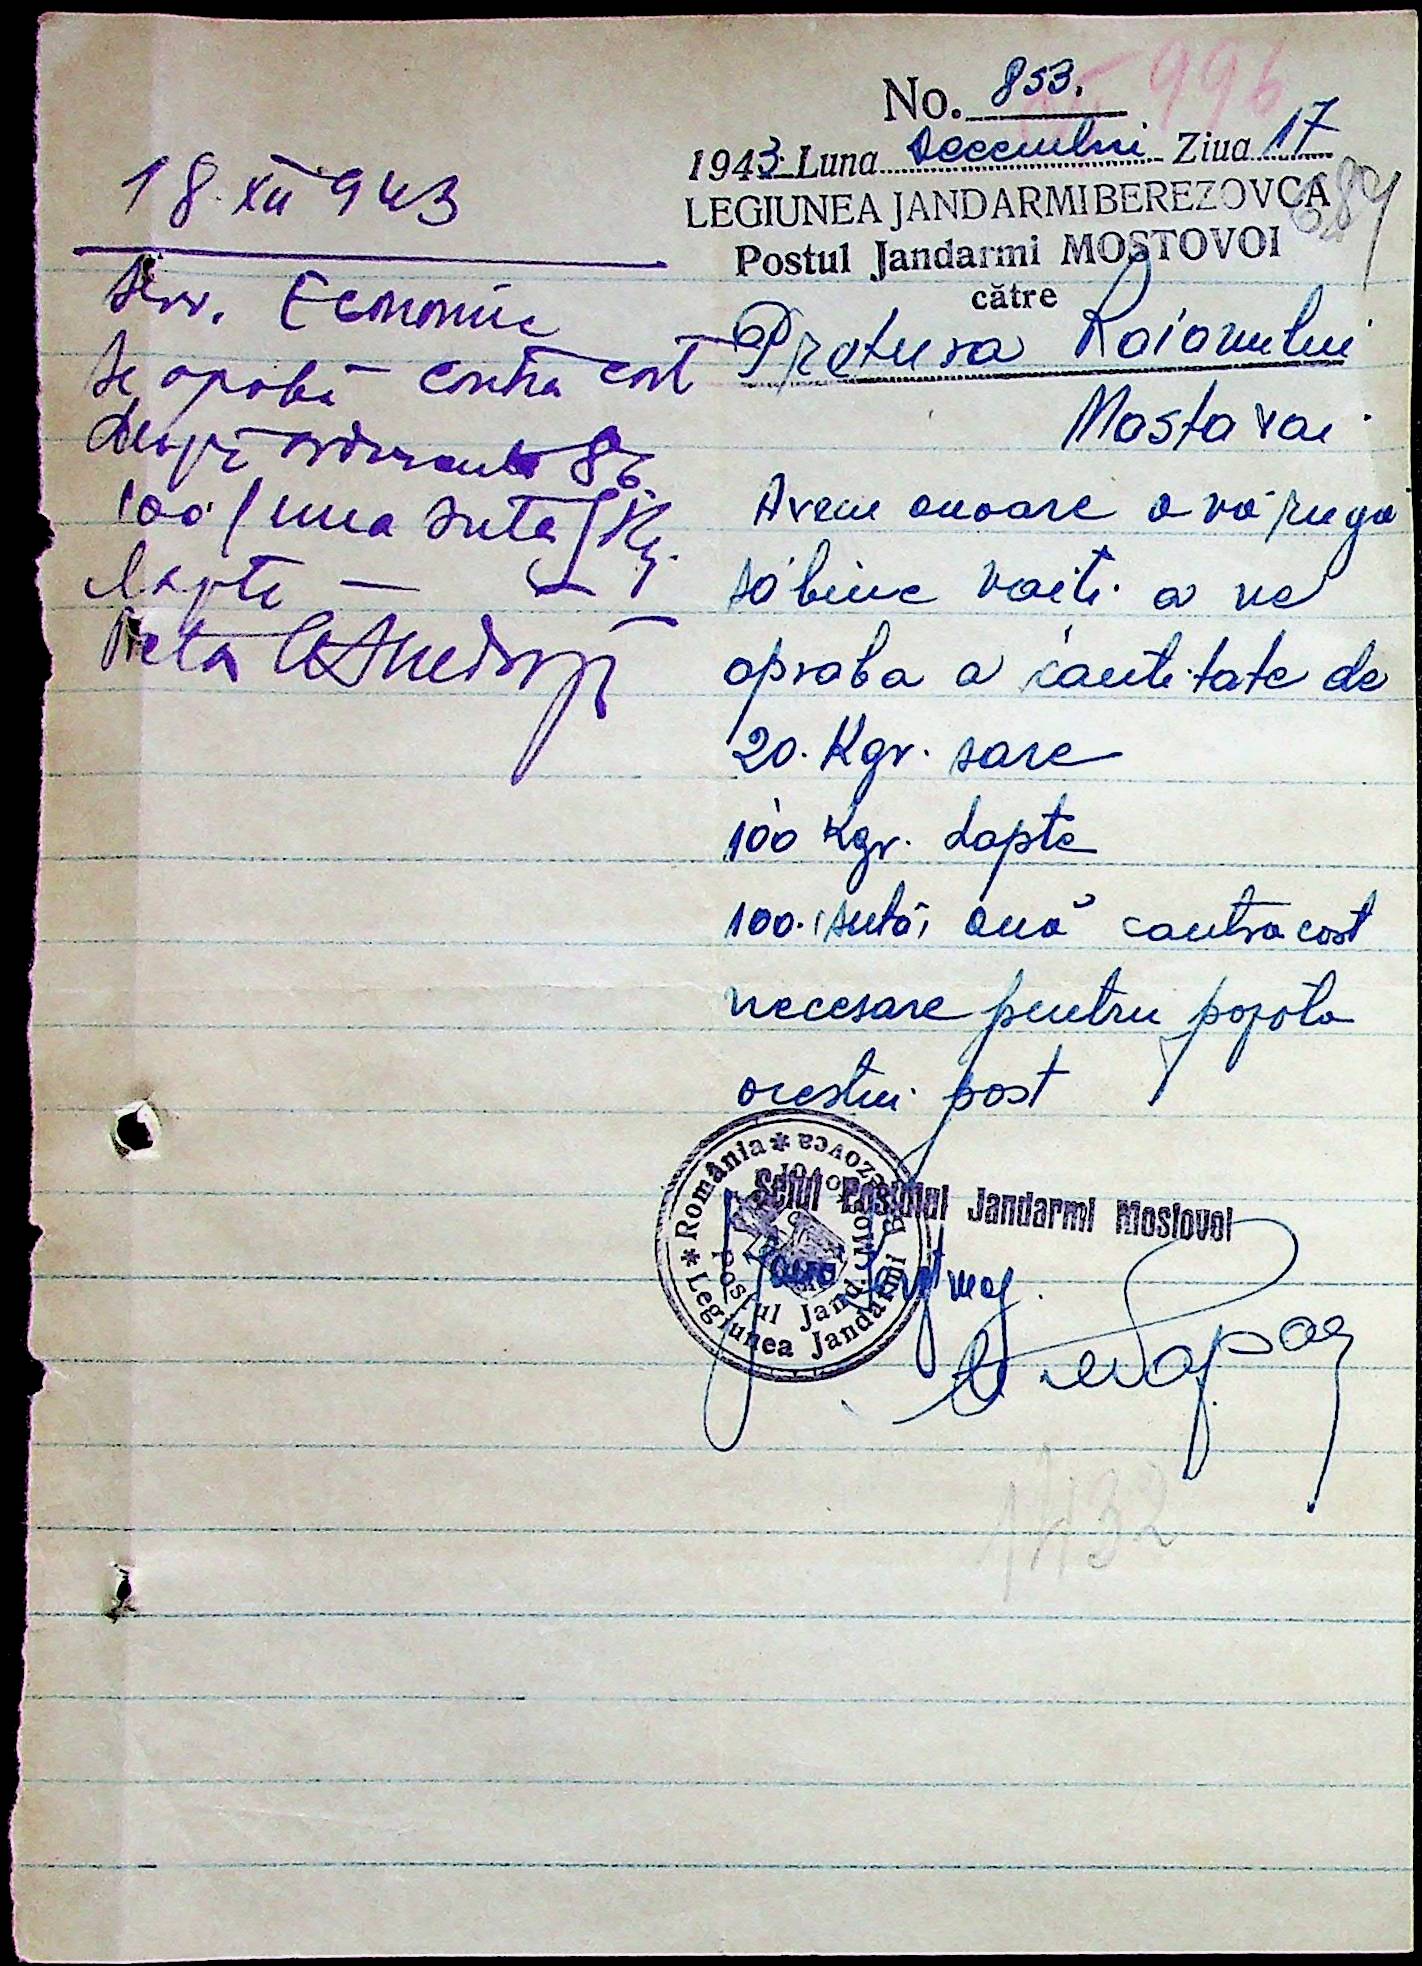 No. 853.
996
1943 Luna Decembrie Ziua 17
LEGIUNEA JANDARMI BEREZOVCA
689
Postul Jandarmi MOSTOVOI
către
Pretura Raionului
Mostovoi
Avem onoare a vă ruga
să bine voiți a ne
aproba o cantitate de
20. Kgr. sare
100 Kgr. Lapte
100. (sută) ouă contra cost
necesare pentru popota
acestui post
Șeful Postului Jandarmi Mostovoi
Plut. maj.
România * Legiunea Jandarmi Berezovca *
Postul Jand. Mostovoi
1432
18 XII 943
Serv. Economic
Se aprobă contra cost
după ordonanța 86
100 (una sută) Kg.
lapte —